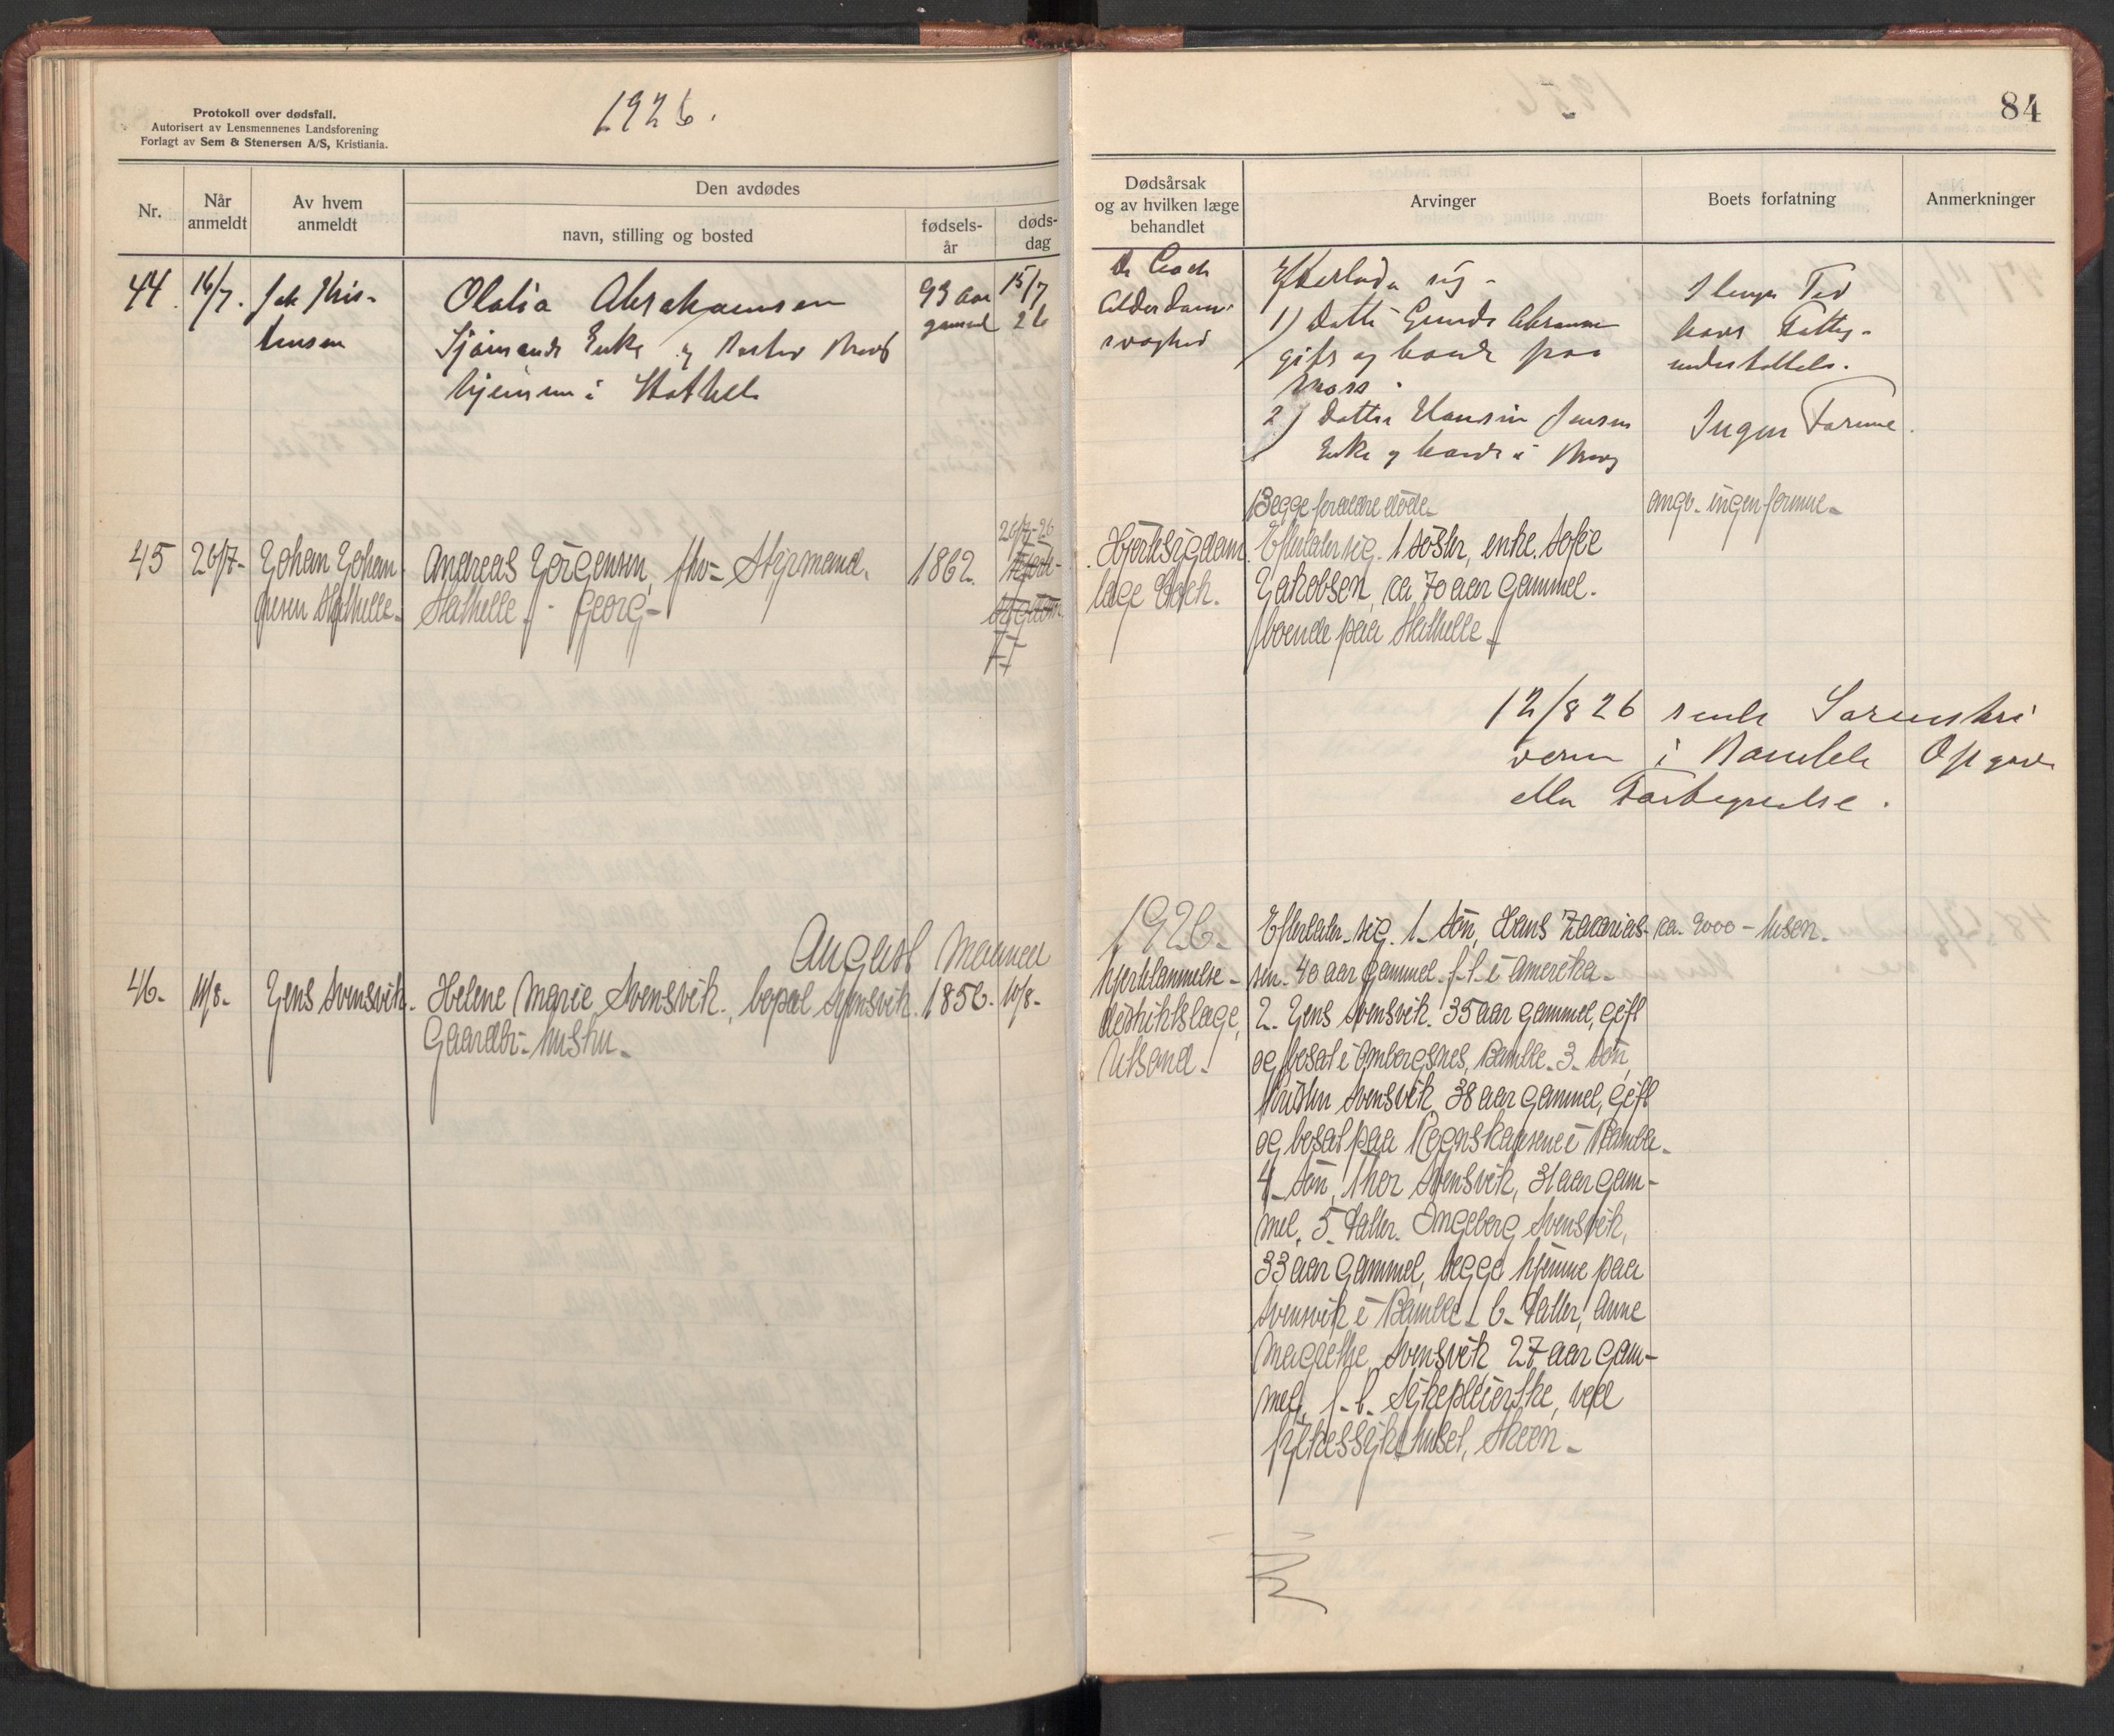 Protokoll over dødsfall.
Autorisert av Lensmennenes Landsforening
Forlagt av Sem & Stenersen A/S, Kristiania.
1926.
Nr.
Når
anmeldt
Av hvem
anmeldt
Den avdødes
navn, stilling og bosted
fødsels-
år
døds-
dag
44. 16/7.
Olalia Abrahamsen
Sjømands Enke og
hjemme i Stathelle
93 aar
gammel
15/7
26
45 26/7- Johan Johan-
gnesen Stathelle-
Andreas Jørgensen, fhv- Styrmand.
Stathelle - Georg-
1862.
26/7-26
August Maaned
46- 11/8- Jens Svensvik.
Helene Marie Svensvik, bopæl Svensvik.
Gaardbr-hustru-
1856. 10/8-
84
Dødsårsak
og av hvilken læge
behandlet
Arvinger
Boets forfatning
Anmerkninger
Dr Coch
Alderdoms
svaghed
Efterlader sig -
1) Datter
gift og boende paa
2) Datter Hansine Jensen
Enke og boende i
I lengre Tid
havt Fattig-
understøttelse.
Ingen Formue.
Begge forældre døde-
Hjertesygdom.
læge Coch.
Efterlater sig. 1 søster, enke. Sofie
Jakobsen, ca 70 aar gammel.
boende paa Stathelle-
ang- ingen formue-
12/8 26 sendt Sorenskri
veren i Bamble Opgave
1926-
hjertelammelse-
distriktslæge,
Efterlater-sig. 1- søn, Hans Zacarias-
sen- 40 aar gammel- f-t- i Amerika-
2- Jens Svensvik. 35 aar gammel, gift
og bosat i Ombergsnes, Bamble- 3- søn,
Kristen Svensvik 38 aar gammel, gift
og bosat paa
4- søn, Thor Svensvik, 31 aar gam-
mel, 5- datter. Ingeborg Svensvik,
33 aar gammel, begge hjemme paa
Svensvik i Bamble- 6- datter, Anne
Magrethe Svensvik 27 aar gam-
mel, f-t- sykepleierske, ved
fylkessykehuset, Skien-
ca- 9000-